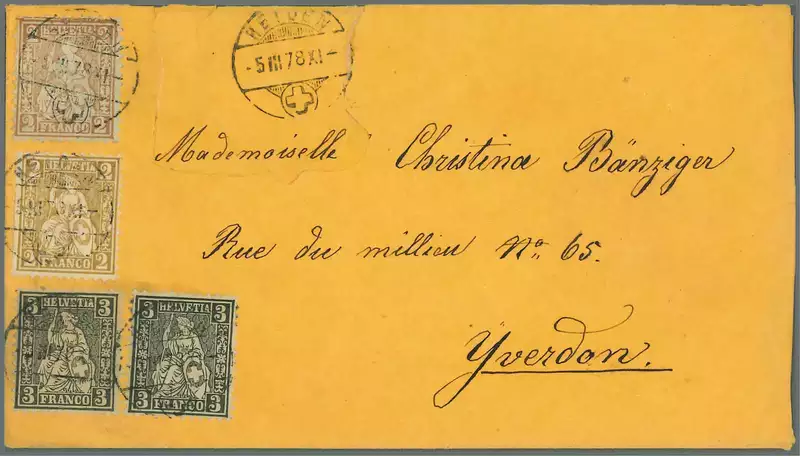 HELVETIA
2 2
2 FRANCO 2
HEIDEN
-5 III 78 XI-
Mademoiselle Christina Bänziger
Rue du millieu No 65.
Yverdon.
HELVETIA
2 2
2 FRANCO 2
3 HELVETIA 3
3 FRANCO 3
3 HELVETIA 3
3 FRANCO 3